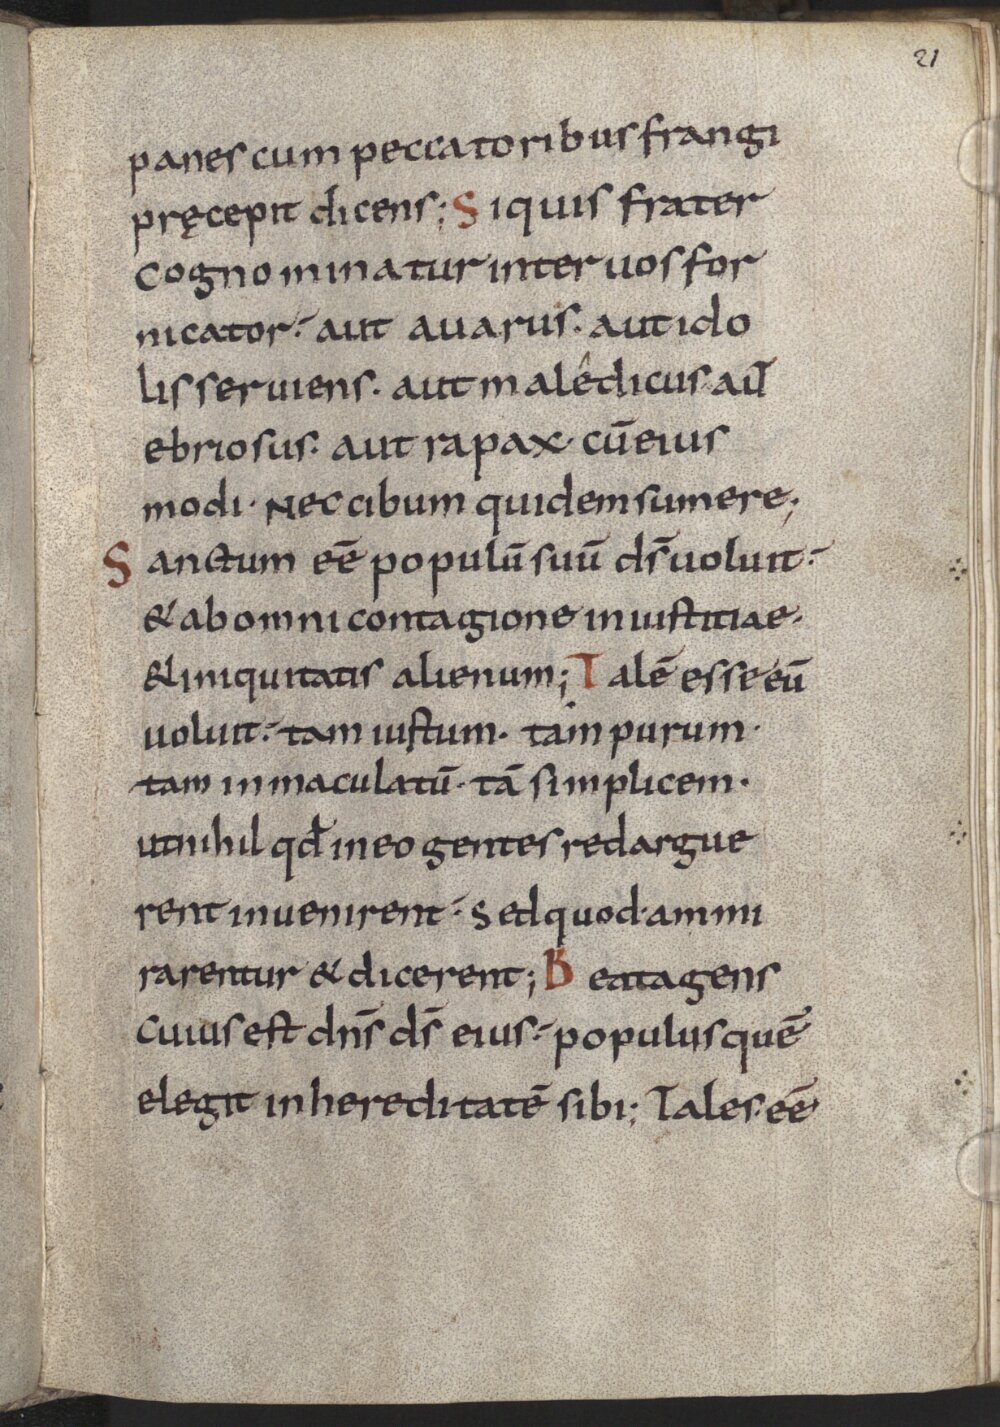 21
panes cum peccatoribus frangi
pręcepit dicens; Siquis frater
cognominatur inter uos for
nicator. aut auarus. aut ido
lis seruiens. aut maledicus. aut̄
ebriosus. aut rapax. cū eius
modi. Nec cibum quidem sumere;
Sanctum eē̄ populū suū d̄s uoluit.
& ab omni contagione iniustitiae.
& iniquitatis alienum; Talē esse eū
uoluit. tam iustum. tam purum.
tam inmaculatū. tā simplicem.
ut nihil qđ in eo gentes redargue
rent inuenirent. Sed quod ammi
rarentur & dicerent; Beata gens
cuius est dn̄s d̄s eius. populus quē
elegit in hereditatē sibi; Tales eē̄